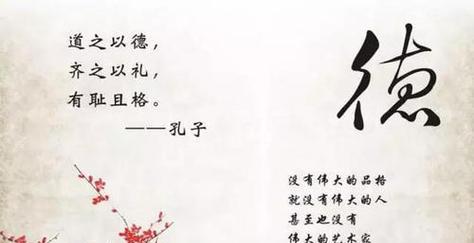 道之以德，
齐之以礼，
有耻且格。
——孔子
德
没有伟大的品格
就没有伟大的人
甚至也没有
伟大的艺术家